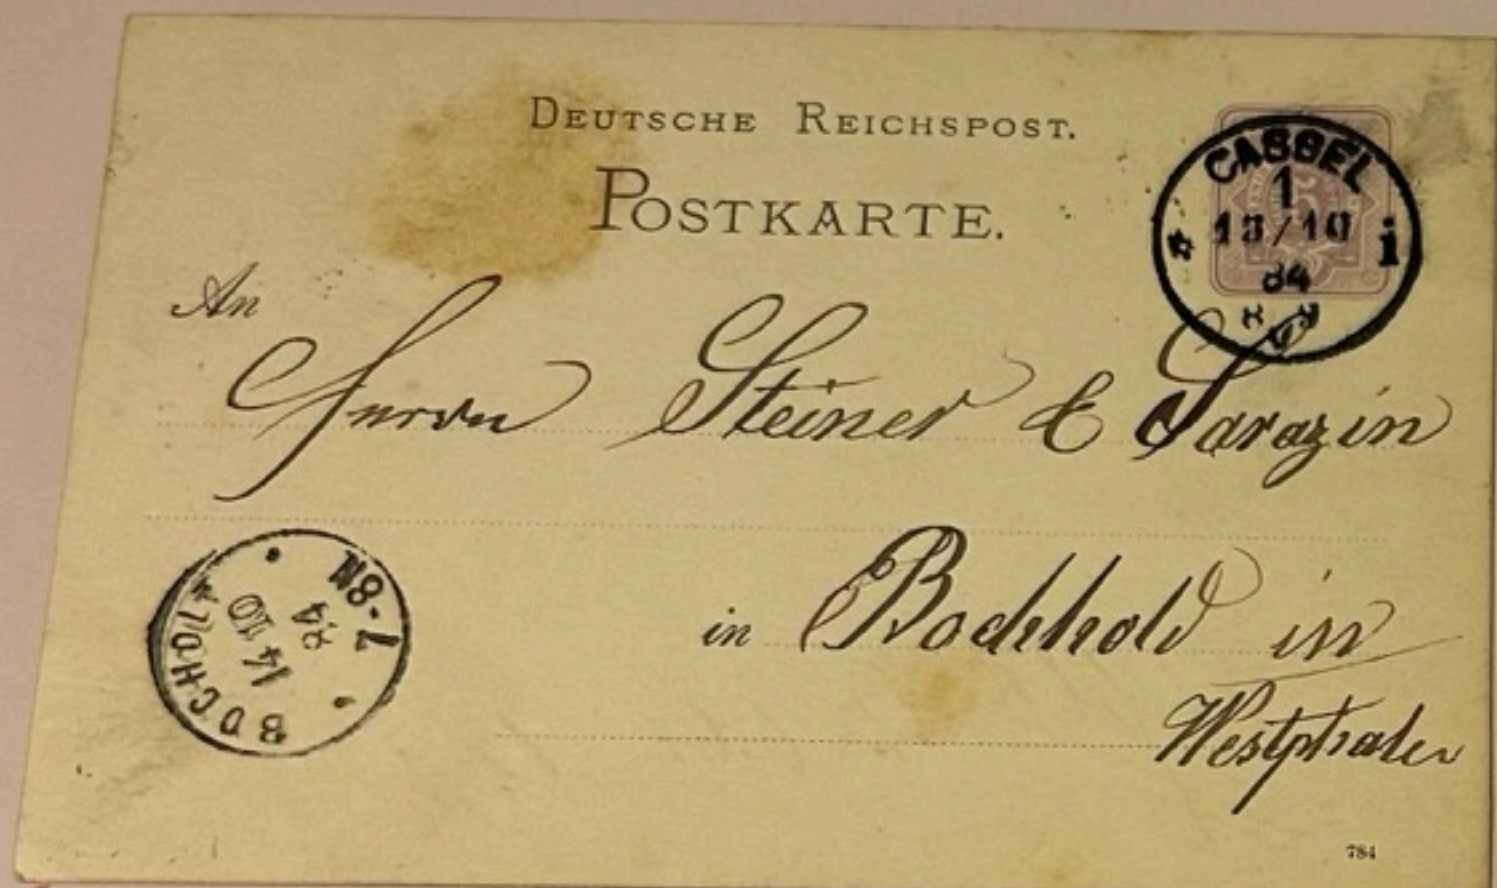 DEUTSCHE REICHSPOST.
POSTKARTE.
CASSEL
1
13/10
84
8 9
V
* i
An
Herren Steiner & Sarazin
in Bochhold in
Westphalen
BOCHOLT
14 10
84
7-8N
784